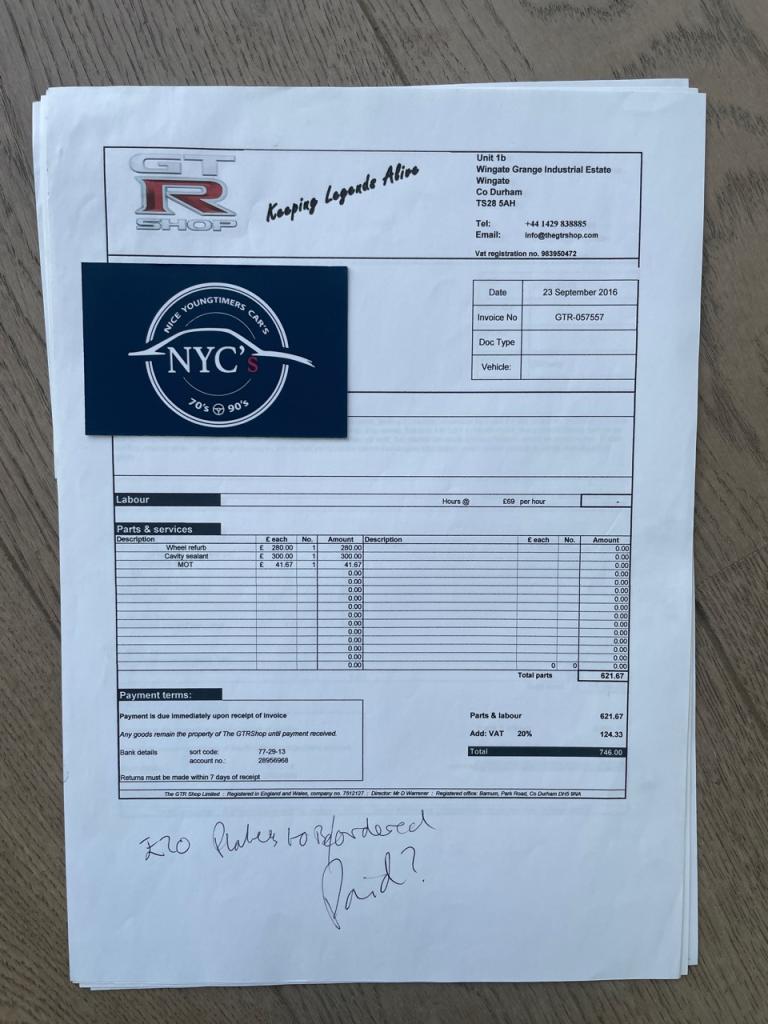 GT
R
SHOP
Keeping Legends Alive
Unit 1b
Wingate Grange Industrial Estate
Wingate
Co Durham
TS28 5AH
Tel: +44 1429 838885
Email: info@thegtrshop.com
Vat registration no. 983950472
NICE YOUNGTIMERS CAR'S
NYC's
70's 90's
Date 23 September 2016
Invoice No GTR-057557
Doc Type
Vehicle:
Labour Hours @ £69 per hour -
Parts & services
Description £ each No. Amount Description £ each No. Amount
Wheel refurb £ 280.00 1 280.00 0.00
Cavity sealant £ 300.00 1 300.00 0.00
MOT £ 41.67 1 41.67 0.00
0.00 0.00
0.00 0.00
0.00 0.00
0.00 0.00
0.00 0.00
0.00 0.00
0.00 0.00
0.00 0.00
0.00 0.00
0.00 0.00
0.00 0.00
0.00 0 0 0.00
Total parts 621.67
Payment terms:
Payment is due immediately upon receipt of invoice
Any goods remain the property of The GTRShop until payment received.
Bank details sort code: 77-29-13
account no.: 28956968
Returns must be made within 7 days of receipt
Parts & labour 621.67
Add: VAT 20% 124.33
Total 746.00
The GTR Shop Limited : Registered in England and Wales, company no. 7512127 : Director: Mr D Warrener : Registered office: Barnum, Park Road, Co Durham DH5 9NA
£20 Plates to Be ordered
Paid?